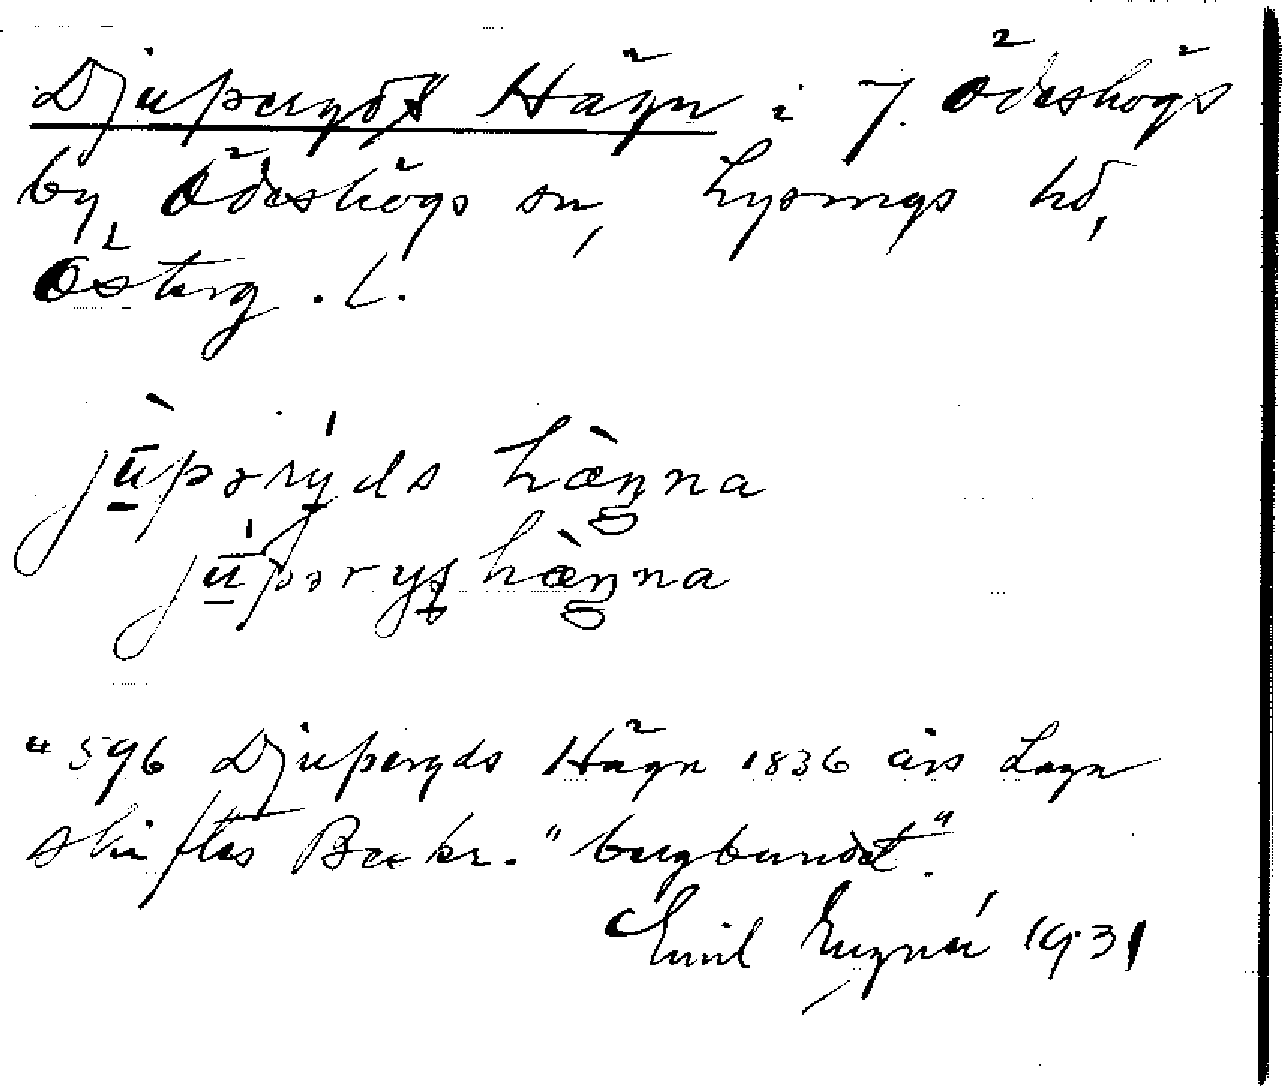 Djuperyds Hägn i 7. Ödeshögs
by, Ödeshögs sn, Lysings hd,
Österg. l.
jùpərýds hæ̀ŋna
jùpəry hæ̀ŋna
"596 Djuperyds Hägn 1836 års Laga
skiftes Beskr. "bergbundet".
Emil 1931